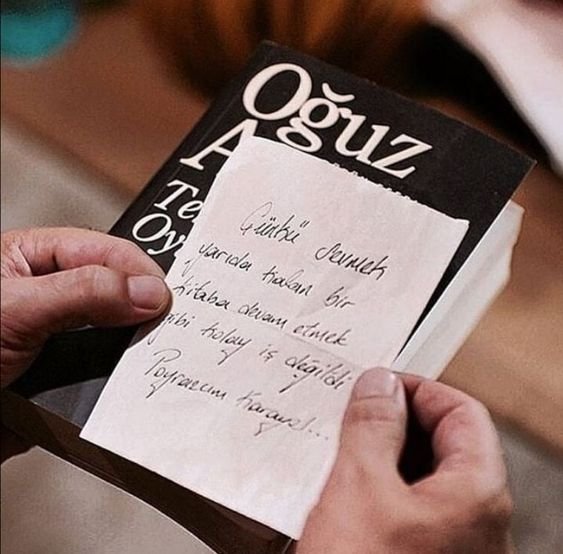 Oğuz
A
Te
Oy
Çünkü sevmek
yarıda kalan bir
kitaba devam etmek
gibi kolay iş değildi
Karayel...